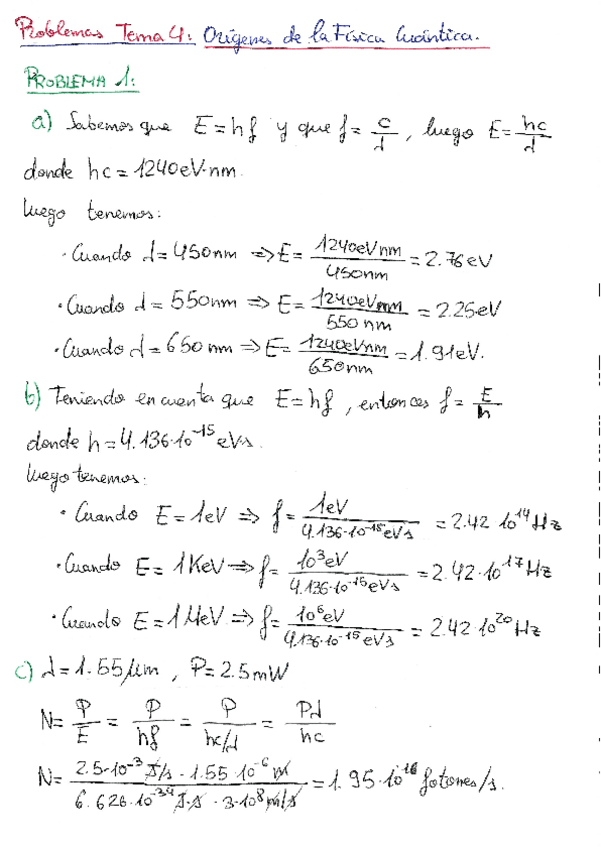 Problemas Tema 4: Orígenes de la Física Cuántica.
PROBLEMA 1:
a) Sabemos que E = hf y que f = c/λ, luego E = hc/λ
donde hc = 1240 eV·nm.
luego tenemos:
· Cuando λ = 450nm ⇒ E = 1240eVnm/450nm = 2.76 eV
· Cuando λ = 550nm ⇒ E = 1240eVnm/550nm = 2.25 eV
· Cuando λ = 650nm ⇒ E = 1240eVnm/650nm = 1.91eV.
b) Teniendo en cuenta que E = hf, entonces f = E/h
donde h = 4.136·10^-15 eVs.
luego tenemos:
· Cuando E = 1eV ⇒ f = 1eV/4.136·10^-15 eVs = 2.42 10^14 Hz
· Cuando E = 1KeV ⇒ f = 10^3eV/4.136·10^-15 eVs = 2.42·10^17 Hz
· Cuando E = 1MeV ⇒ f = 10^6eV/4.136·10^-15 eVs = 2.42·10^20 Hz
c) λ = 1.55μm, P = 2.5mW
N = P/E = P/hf = P/hc/λ = Pλ/hc
N = 2.5·10^-3 J/s · 1.55·10^-6 m / 6.626·10^-34 J·s · 3·10^8 m/s = 1.95·10^16 fotones/s.